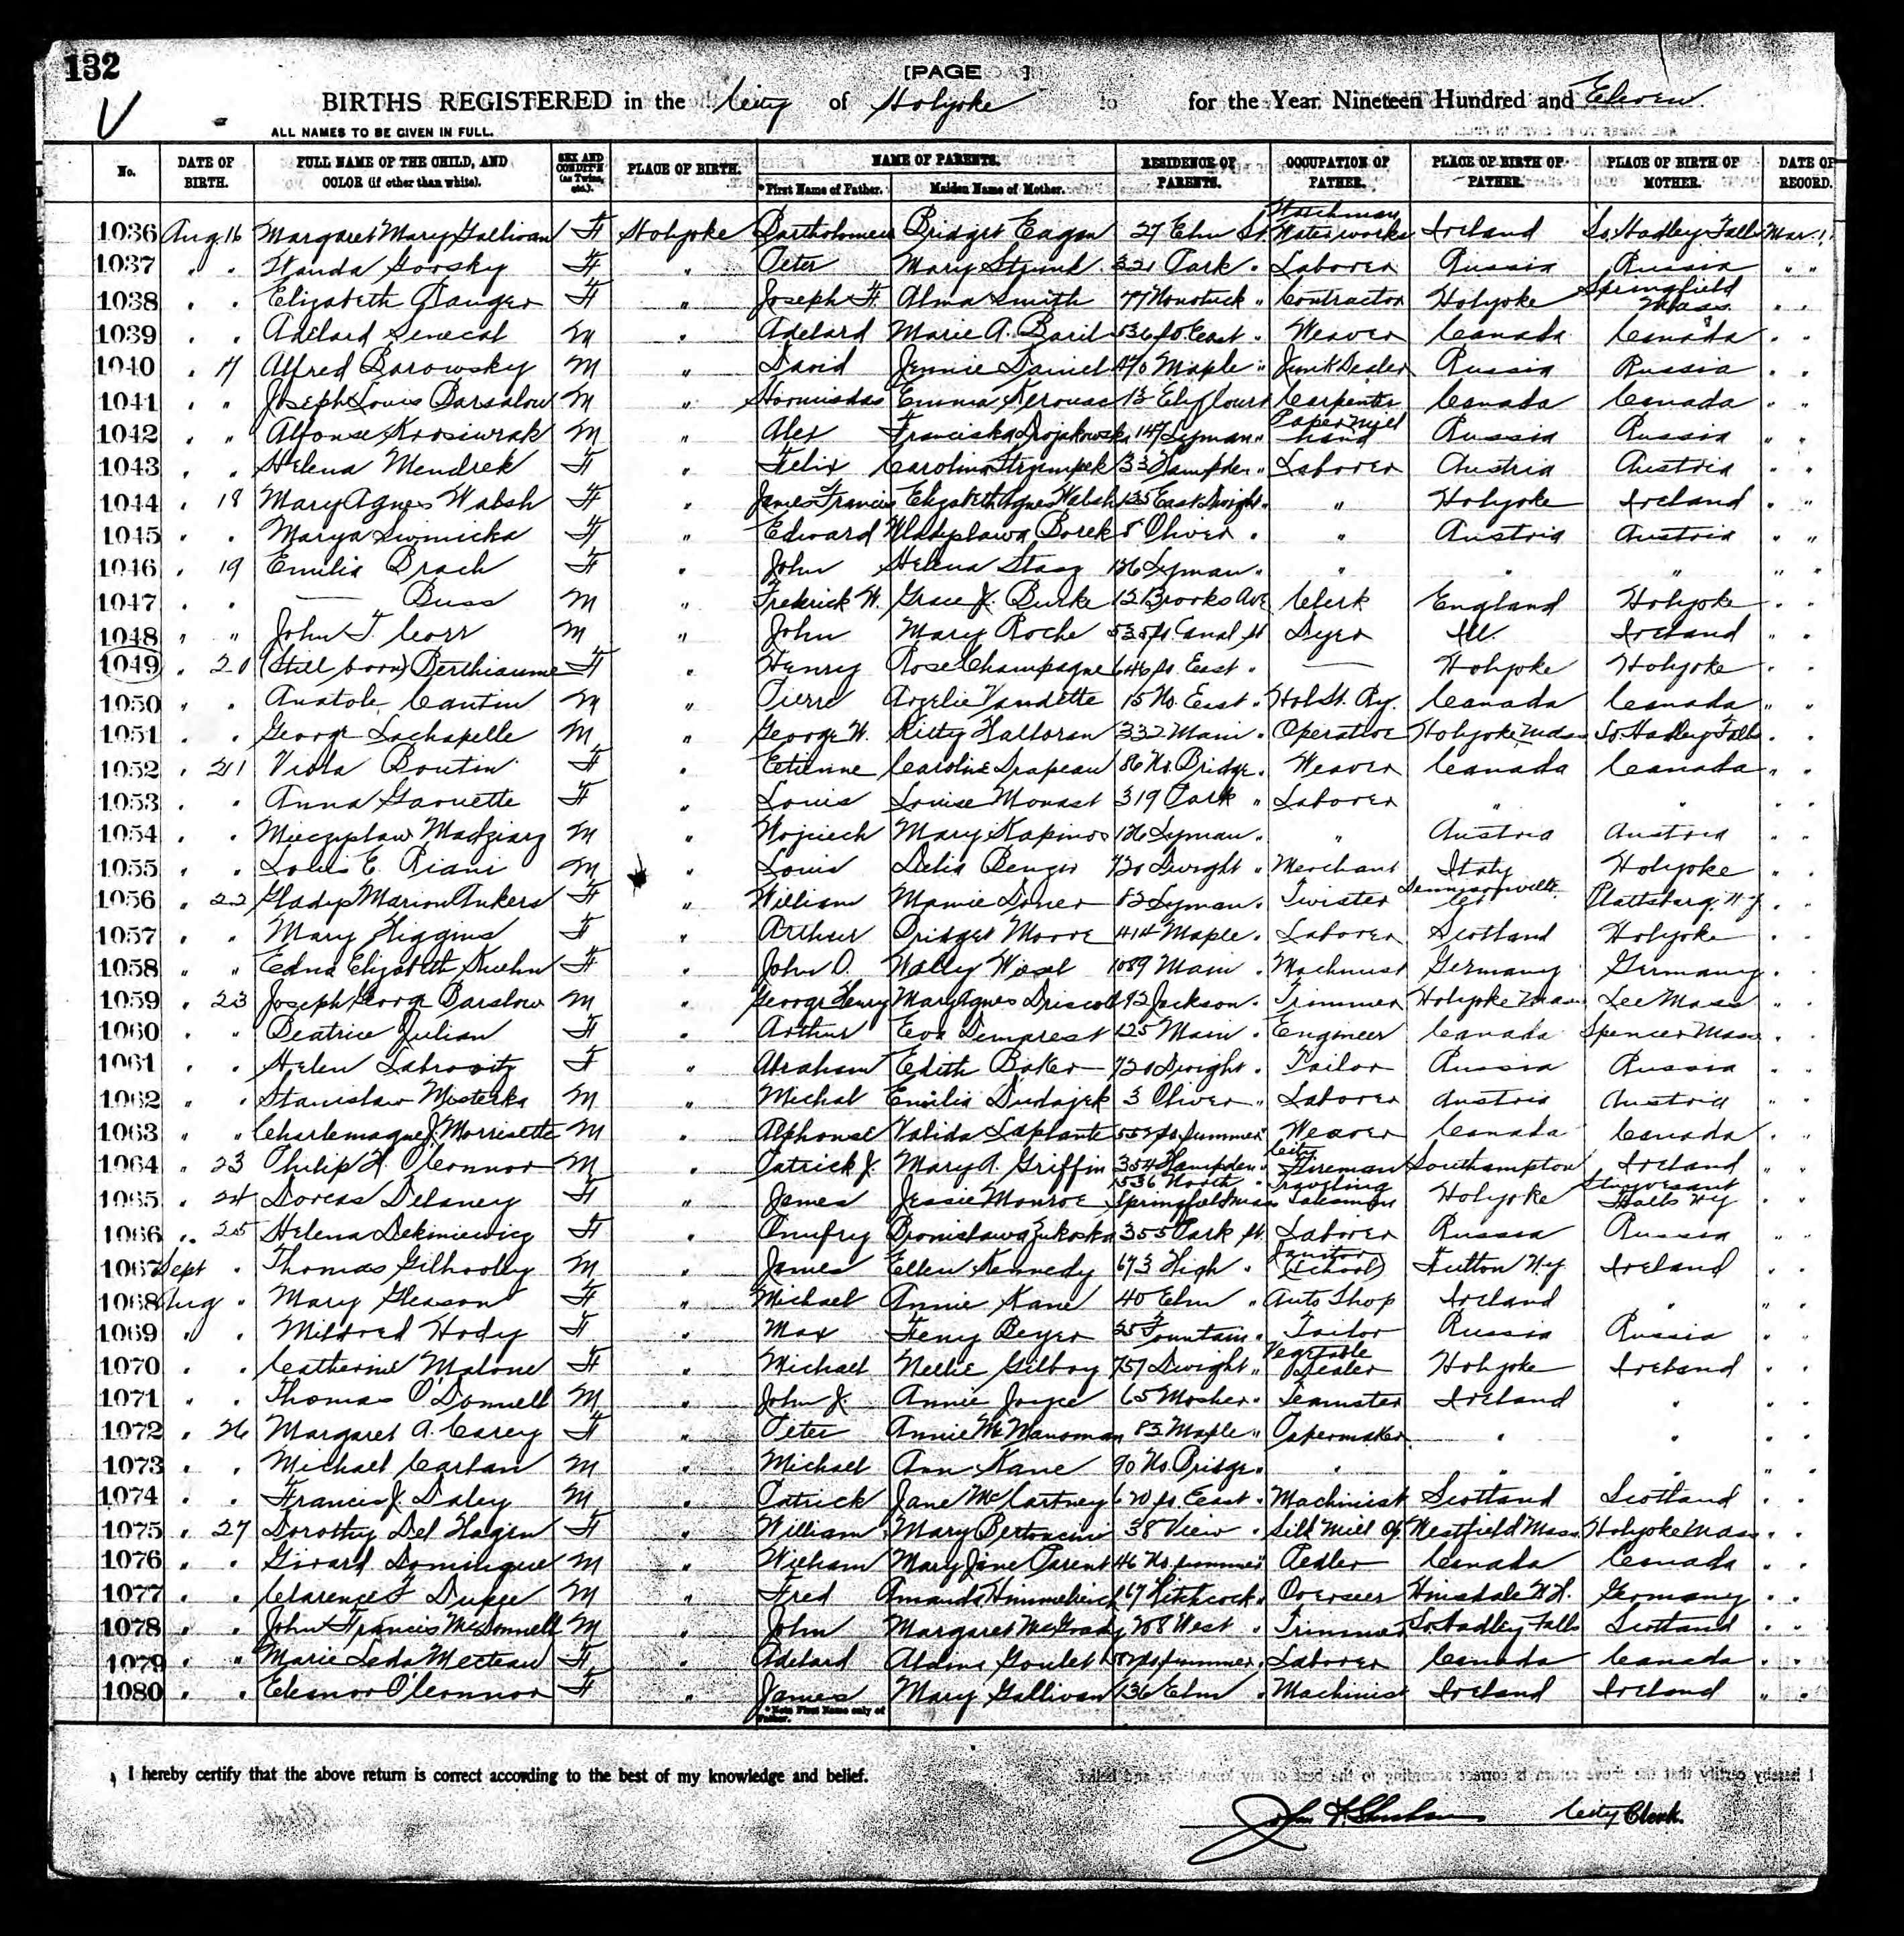 132
[PAGE ]
BIRTHS REGISTERED in the City of Holyoke for the Year Nineteen Hundred and Eleven.
ALL NAMES TO BE GIVEN IN FULL.
No. DATE OF BIRTH. FULL NAME OF THE CHILD, AND COLOR (if other than white). SEX AND CONDIT'N (as Twins, etc.). PLACE OF BIRTH. NAME OF PARENTS. *First Name of Father. Maiden Name of Mother. RESIDENCE OF PARENTS. OCCUPATION OF FATHER. PLACE OF BIRTH OF FATHER. PLACE OF BIRTH OF MOTHER. DATE OF RECORD.
1036 Aug. 16 Margaret Mary Gallivan F Holyoke Bartholomew Bridget Eagan 27 Elm St Watchman Waterworks Ireland So. Hadley Falls Mar. 1,
1037 " " Wanda Gorsky F " Peter Mary 321 Park " Laborer Russia Russia " "
1038 " " Elizabeth Granger F " Joseph F. Alma Smith 77 Nonotuck " Contractor Holyoke Springfield Mass. " "
1039 " " Adelard Senecal M " Adelard Marie A. Baril 536 So. East " Weaver Canada Canada " "
1040 " 17 Alfred Borowsky M " David Jennie Daniel 470 Maple " Junk Dealer Russia Russia " "
1041 " " Joseph Louis Barsalow M " Hormisdas Emma Kerouac 13 Ely Court Carpenter Canada Canada " "
1042 " " Alfonse M " Alex Franciska 147 Lyman " Paper Mill hand Russia Russia " "
1043 " " Helena Mendrek F " Felix Carolina 33 Hampden " Laborer Austria Austria " "
1044 " 18 Mary Agnes Walsh F " James Francis Elizabeth Agnes Walsh 135 East Dwight " " Holyoke Ireland " "
1045 " " Marya F " Edward Wladyslawa Borek 8 Oliver " " Austria Austria " "
1046 " 19 Emilia Brach F " John Helena 136 Lyman " " " " " "
1047 " " — Buss M " Frederick W. Grace J. Burke 12 Brooks Ave Clerk England Holyoke " "
1048 " " John T. Corr M " John Mary Roche 535 So. Canal St Dyer Ill. Ireland " "
1049 " 20 (Still born) Berthiaume F " Henry Rose Champagne 646 So. East " — Holyoke Holyoke " "
1050 " " Anatole Cantin M " Pierre Azelie Vandette 15 No. East " Hol. St. Ry. Canada Canada " "
1051 " " George Lachapelle M " George W. Kitty Halloran 332 Main " Operative Holyoke Mass So. Hadley Falls " "
1052 " 21 Viola Boutin F " Etienne Caroline Drapeau 86 No. Bridge " Weaver Canada Canada " "
1053 " " Anna Gaouette F " Louis Louise Monast 319 Park " Laborer " " " "
1054 " " Mieczyslaw Madziarz M " Wojciech Mary Kapinos 126 Lyman " " Austria Austria " "
1055 " " Louis E. Riani M " Louis Delia Benger 720 Dwight " Merchant Italy Holyoke " "
1056 " 22 Gladys Marion Ankers F " William Mamie Doner 82 Lyman " Twister Plattsburg, N.Y. " "
1057 " " Mary Higgins F " Arthur Bridget Moore 414 Maple " Laborer Scotland Holyoke " "
1058 " " Edna Elizabeth Kuehn F " John O. Wally 1089 Main " Machinist Germany Germany " "
1059 " 23 Joseph George Barslow M " George Henry Mary Agnes Driscoll 92 Jackson " Trimmer Holyoke Mass Lee Mass " "
1060 " " Beatrice Julian F " Arthur Eva Demarest 425 Main " Engineer Canada Spencer Mass " "
1061 " " Helen Labrovitz F " Abraham Edith Baker 720 Dwight " Tailor Russia Russia " "
1062 " " Stanislaw Misterka M " Michal Emilia Dudajek 3 Oliver " Laborer Austria Austria " "
1063 " " Charlemagne J. Morrisette M " Alphonse Valida Laplante 552 So. Summer " Weaver Canada Canada " "
1064 " 23 Philip H. O'Connor M " Patrick J. Mary A. Griffin 354 Hampden " City Fireman Southampton Ireland " "
1065 " 24 Dorcas Delaney F " James Jessie Monroe 1536 North " Springfield Mass Traveling Salesman Holyoke Stuyvesant Falls N.Y. " "
1066 " 25 Helena Dekiniewicz F " Onufry Bronislawa 355 Park St. Laborer Russia Russia " "
1067 Sept " Thomas Gilhooley M " James Ellen Kennedy 673 High " Janitor (School) Fulton N.Y. Ireland " "
1068 Aug " Mary Gleason F " Michael Annie Kane 40 Elm " Auto Shop Ireland " " "
1069 " " Mildred Hody F " Max Feny Beyer 25 Fountain " Tailor Russia Russia " "
1070 " " Catherine Malone F " Michael Nellie Gilboy 757 Dwight " Vegetable Dealer Holyoke Ireland " "
1071 " " Thomas O'Donnell M " John J. Annie Joyce 65 Mosher " Teamster Ireland " " "
1072 " 26 Margaret A. Carey F " Peter Annie McManoman 83 Maple " Papermaker " " " "
1073 " " Michael Carlan M " Michael Ann Kane 90 No. Bridge " " " " " "
1074 " " Francis J. Daley M " Patrick Jane McCartney 620 So. East " Machinist Scotland Scotland " "
1075 " 27 Dorothy Del Hagen F " William Mary Bertoncini 38 View " Silk Mill Op. Westfield Mass. Holyoke Mass " "
1076 " " Girard Domingue M " William Mary Jane Parent 46 No. Summer " Pedler Canada Canada " "
1077 " " Clarence F. Dupee M " Fred Amanda 67 Hitchcock " Overseer Hinsdale N.H. Germany " "
1078 " " John Francis McDonnell M " John Margaret McGrady 208 West " Trimmer So. Hadley Falls Scotland " "
1079 " " Marie Leda Mecteau F " Adelard Aldina Goulet Summer " Laborer Canada Canada " "
1080 " " Eleanor O'Connor F " James Mary Gallivan 136 Elm " Machinist Ireland Ireland " "
*Note First Name only of Father.
I hereby certify that the above return is correct according to the best of my knowledge and belief.
City Clerk.